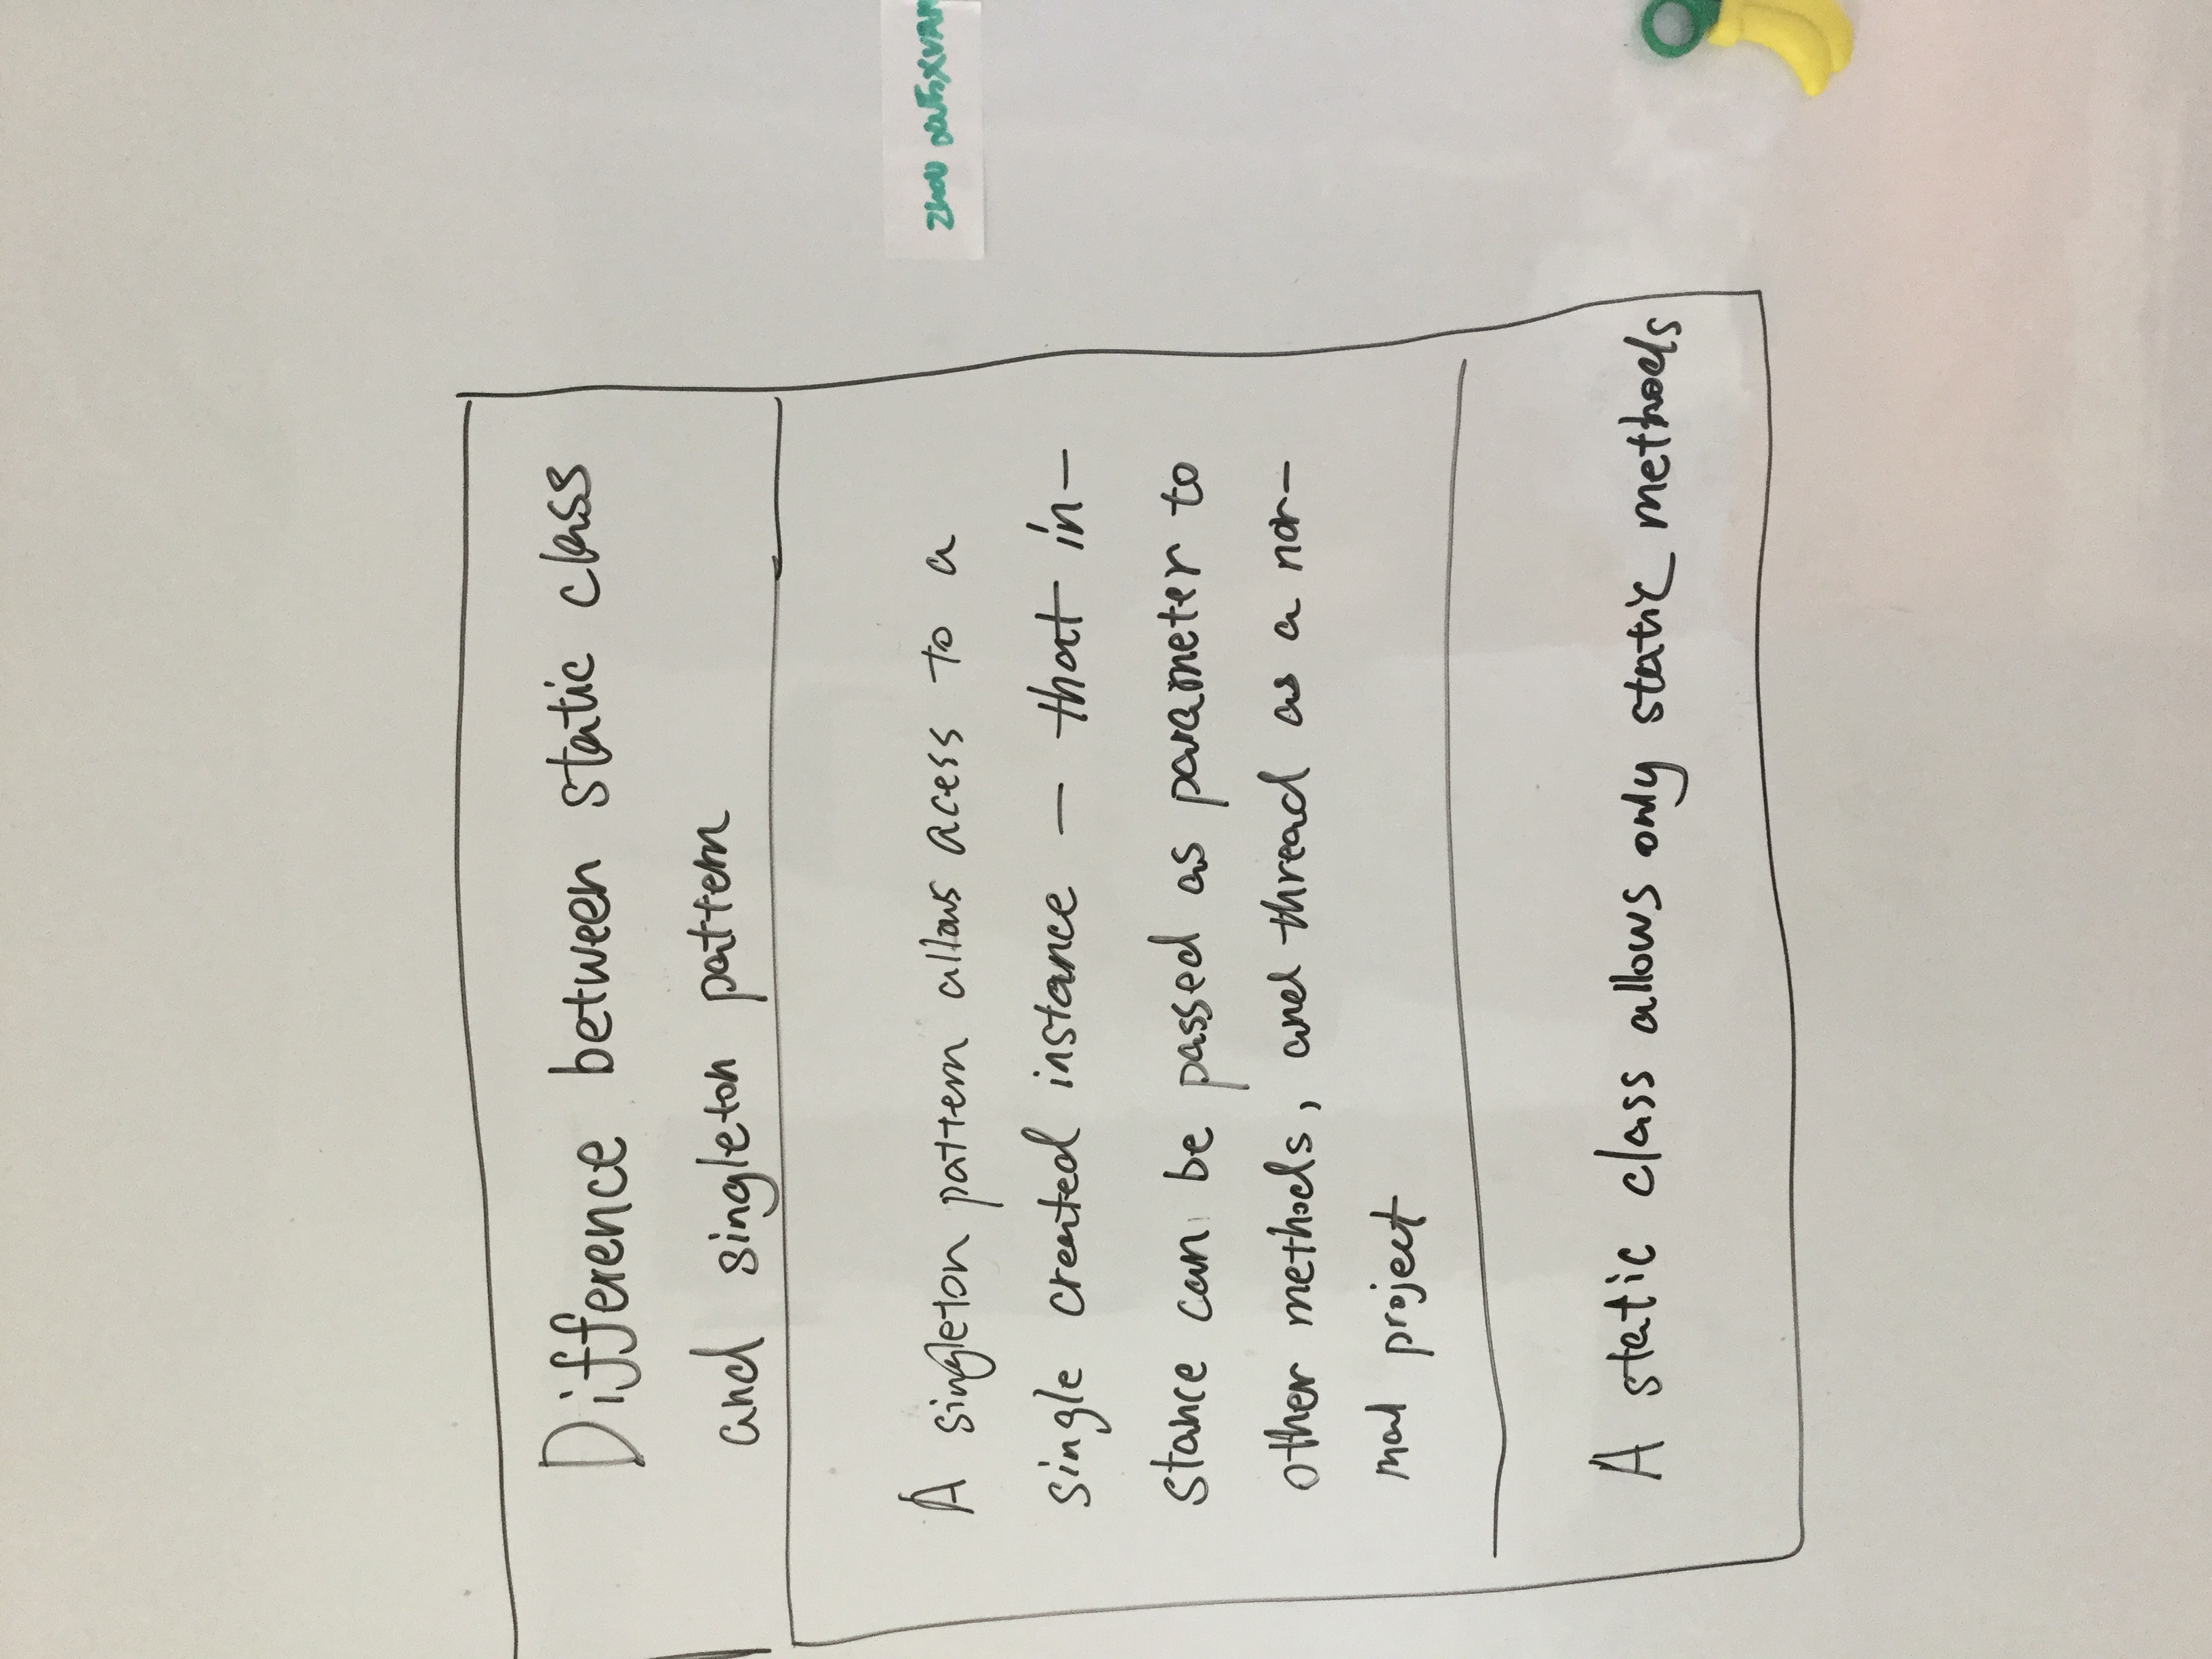 Difference between static class
and singleton pattern
A singleton pattern allows acess to a
single created instance — that in-
stance can be passed as parameter to
other methods, and thread as a nor-
mal project
A static class allows only static methods
ZHOU